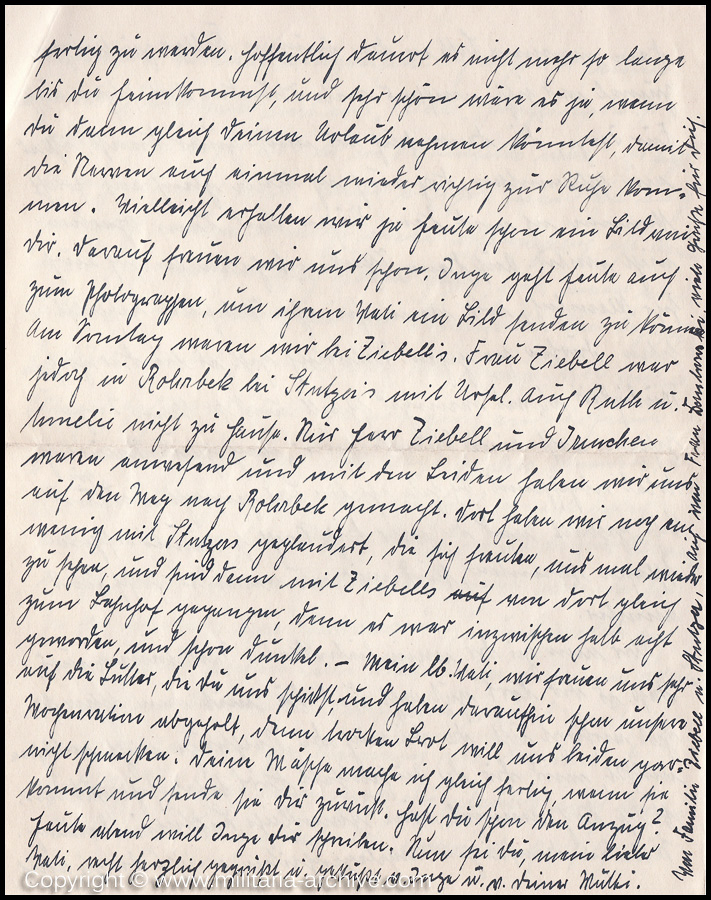 fertig zu werden. Hoffentlich dauert es nicht mehr so lange
bis du heimkommst, und sehr schön wäre es ja, wenn
du dann gleich deinen Urlaub nehmen könntest, damit
die Nerven auf einmal wieder richtig zur Ruhe kom-
men. Vielleicht erhalten wir ja heute schon ein Bild von
dir. Darauf freuen wir uns schon. Inge geht heute auch
zum Photographen, um ihrem Vati ein Bild senden zu können
Am Sonntag waren wir bei Ziebell's. Frau Ziebell war
jedoch in Rohrbek bei Stutzers mit Ursel. Auch Ruth u.
Amelie nicht zu Hause. Nur Herr Ziebell und Irmchen
waren anwesend und mit den Beiden haben wir uns
auf den Weg nach Rohrbek gemacht. Dort haben wir noch ein
wenig mit Stutzers geplaudert, die sich freuten, uns mal wieder
zu sehen, und sind dann mit Ziebells von dort gleich
zum Bahnhof gegangen, denn es war inzwischen halb acht
geworden, und schon dunkel. – Mein lb. Vati, wir freuen uns sehr
auf die Butter, die du uns schickst, und haben daraufhin schon unsere
Wochenration abgeholt, denn trocken Brot will uns beiden gar
nicht schmecken. Deine Wäsche mache ich gleich fertig, wenn sie
kommt und sende sie dir zurück. Hast du schon den Anzug?
Heute abend will Inge dir schreiben. Nun sei du, mein lieber
Vati, recht herzlich gegrüßt u. geküßt v. Inge u. v. deiner Mutti.
Von Familie Ziebell u. Stutzer, auch von Frau viele Grüße für dich.
Copyright © www.militaria-archive.com